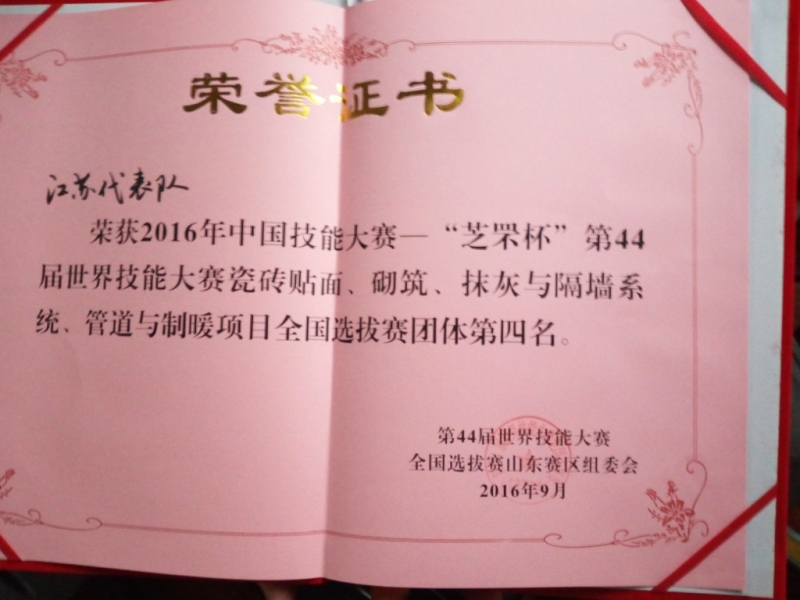 荣誉证书
江苏代表队
荣获2016年中国技能大赛—“芝罘杯”第44
届世界技能大赛瓷砖贴面、砌筑、抹灰与隔墙系
统、管道与制暖项目全国选拔赛团体第四名。
第44届世界技能大赛
全国选拔赛山东赛区组委会
2016年9月